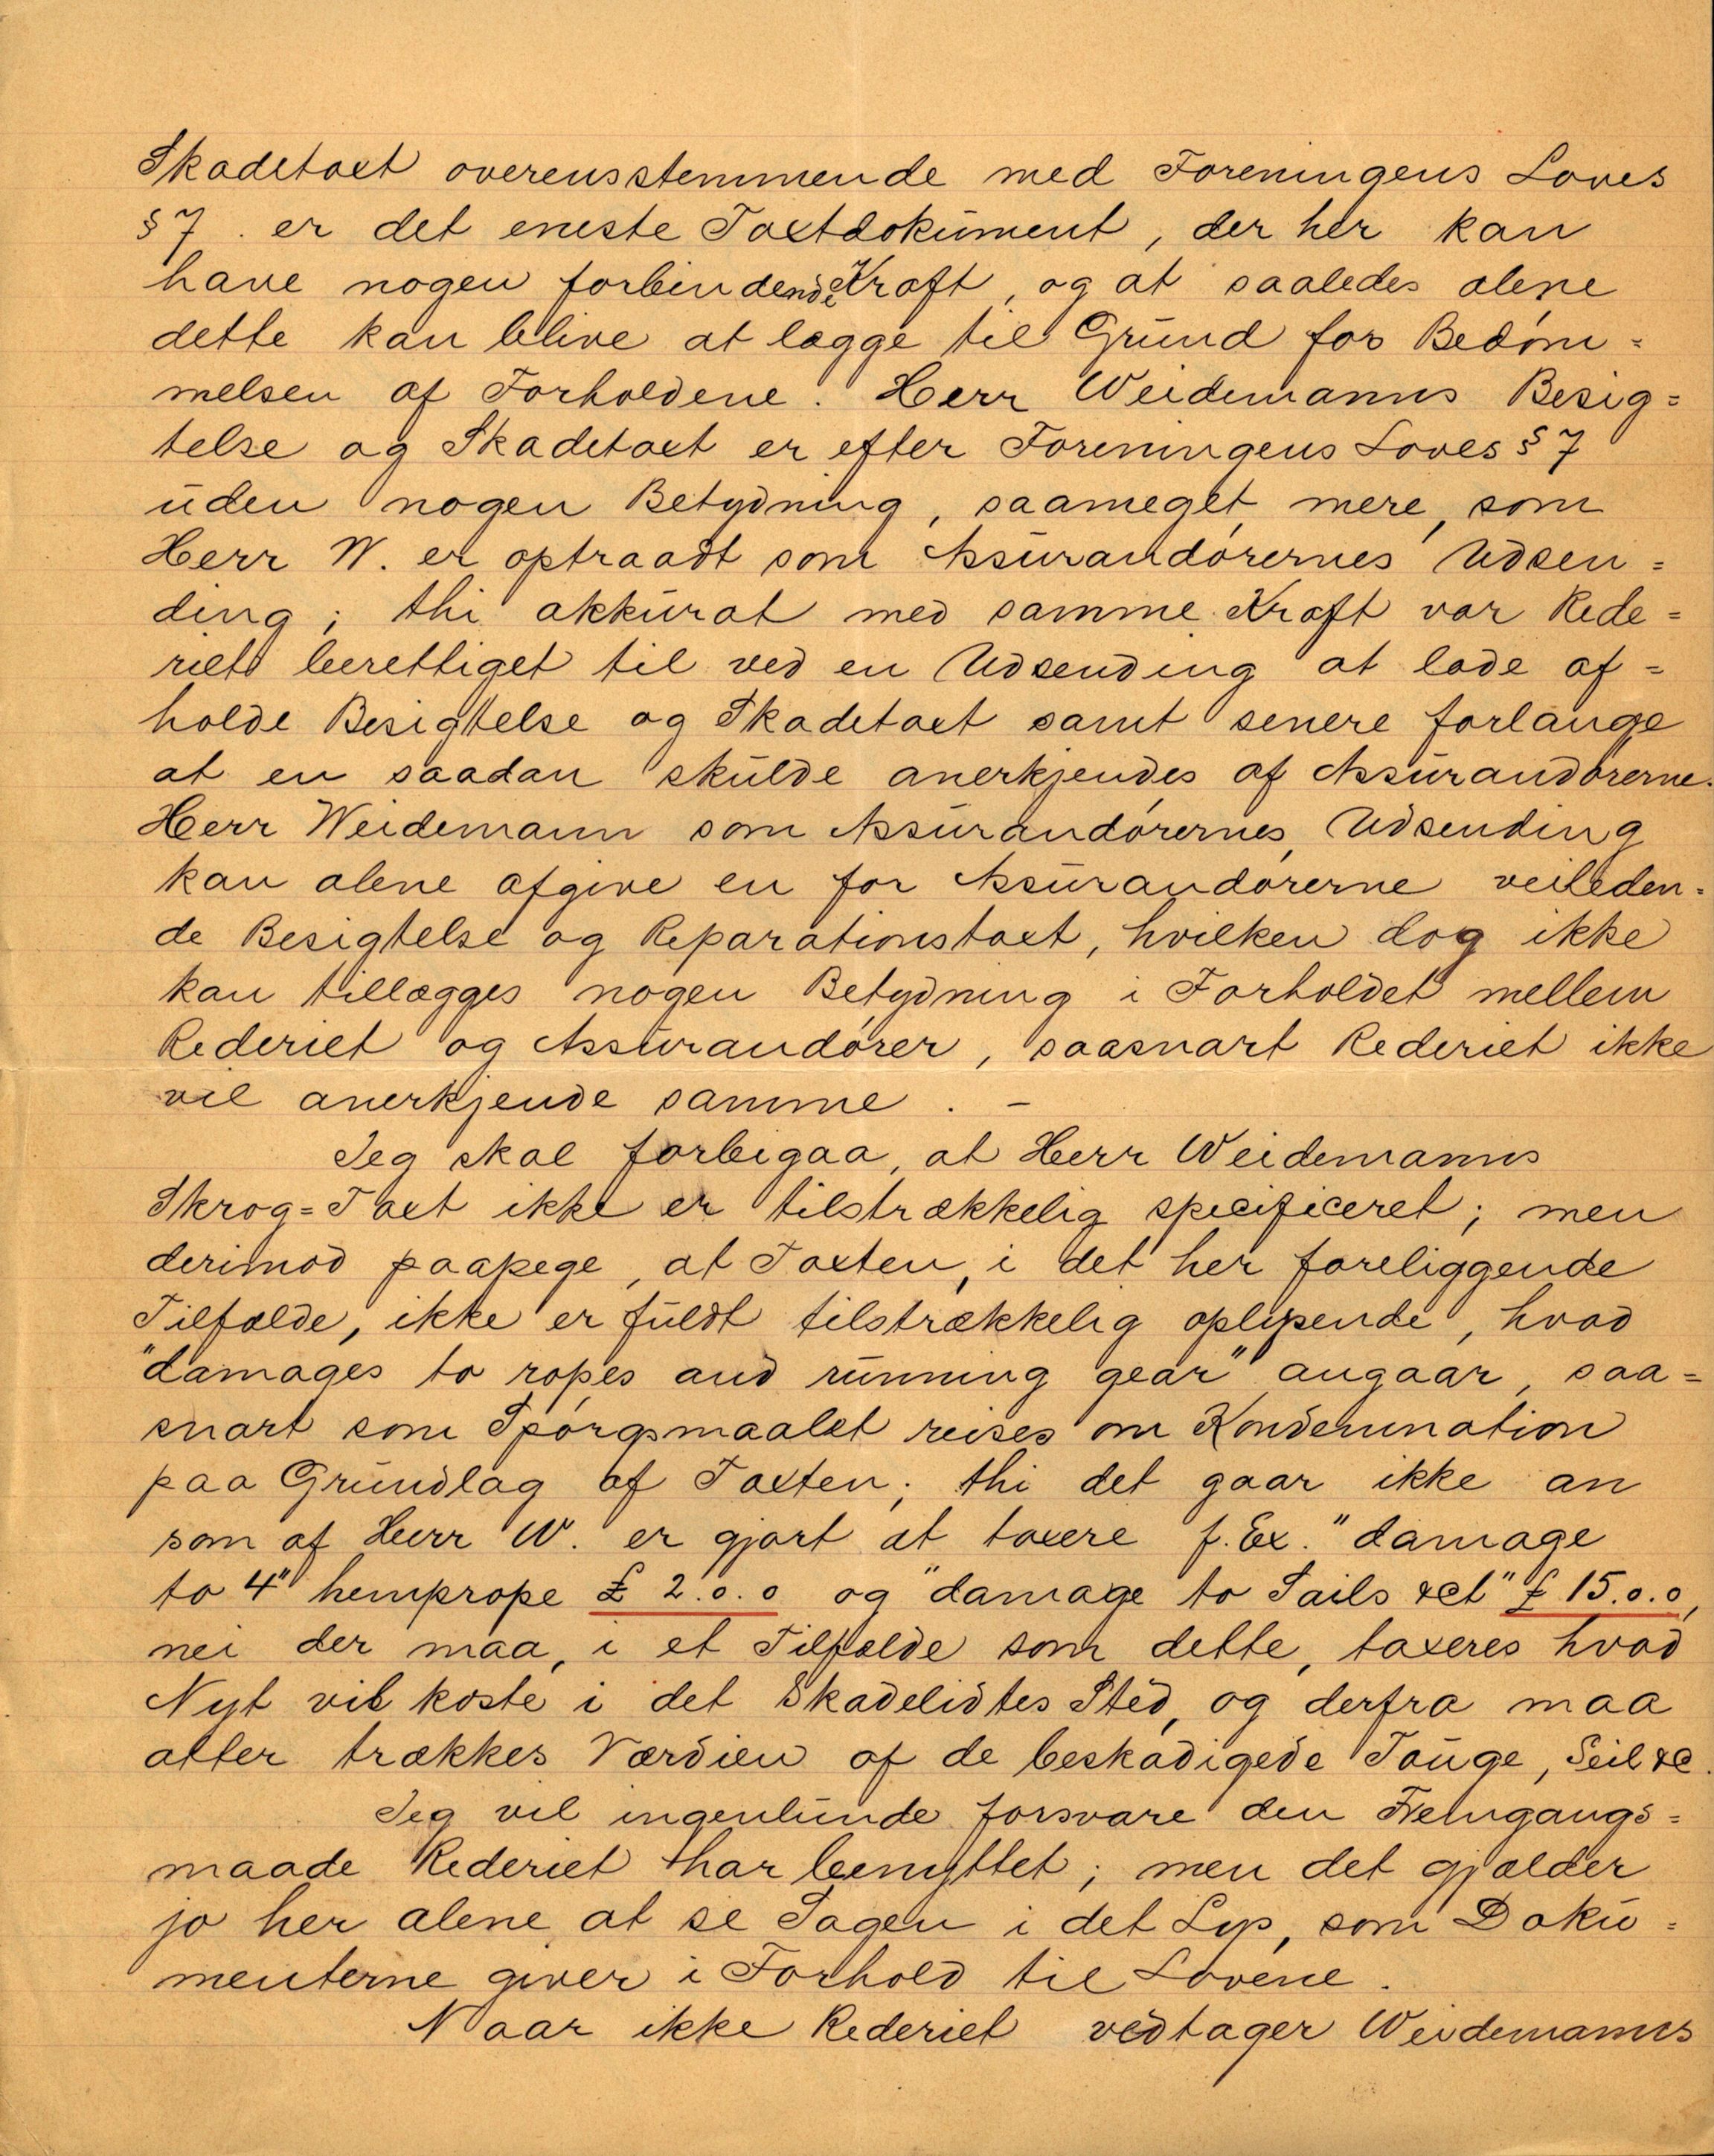 Skadetaxt overensstemmende med Foreningens Loves
§ 7. er det eneste Taxtdokument, der her kan
have nogen forbindende Kraft, og at saaledes alene
dette kan blive at lægge til Grund for Bedøm=
melsen af Forholdene. Herr Weidemanns Besig=
telse og Skadetaxt er efter Foreningens Loves § 7
uden nogen Betydning, saameget mere, som
Herr W. er optraadt som Assurandørernes Udsen=
ding; thi akkurat med samme Kraft var Rede=
riet berettiget til ved en Udsending at lade af=
holde Besigtelse og Skadetaxt samt senere forlange
at en saadan skulde anerkjendes af Assurandørerne.
Herr Weidemann som Assurandørernes Udsending
kan alene afgive en for Assurandørerne veileden=
de Besigtelse og Reparationstaxt, hvilken dog ikke
kan tillægges nogen Betydning i Forholdet mellem
Rederiet og Assurandører, saasnart Rederiet ikke
vil anerkjende samme. –
Jeg skal forbigaa, at Herr Weidemanns
Skrog=Taxt ikke er tilstrækkelig specificeret; men
derimod paapege, at Taxten, i det her foreliggende
Tilfælde, ikke er fuldt tilstrækkelig oplysende, hvad
"damages to ropes and running gear" angaar, saa=
snart som Spørgsmaalet reises om Kondemnation
paa Grundlag af Taxten; thi det gaar ikke an
som af Herr W. er gjort at taxere f. Ex. "damage
to 4" hemprope £ 2.0.0 og "damage to Sails &ct" £ 15.0.0,
nei der maa, i et Tilfælde som dette, taxeres hvad
Nyt vil koste i det Skadelidtes Sted, og derfra maa
atter trækkes Værdien af de beskadigede Touge, Seil &c.
Jeg vil ingenlunde forsvare den Fremgangs=
maade Rederiet har benyttet; men det gjælder
jo her alene at se Sagen i det Lys, som Doku=
menterne giver i Forhold til Lovene.
Naar ikke Rederiet vedtager Weidemanns